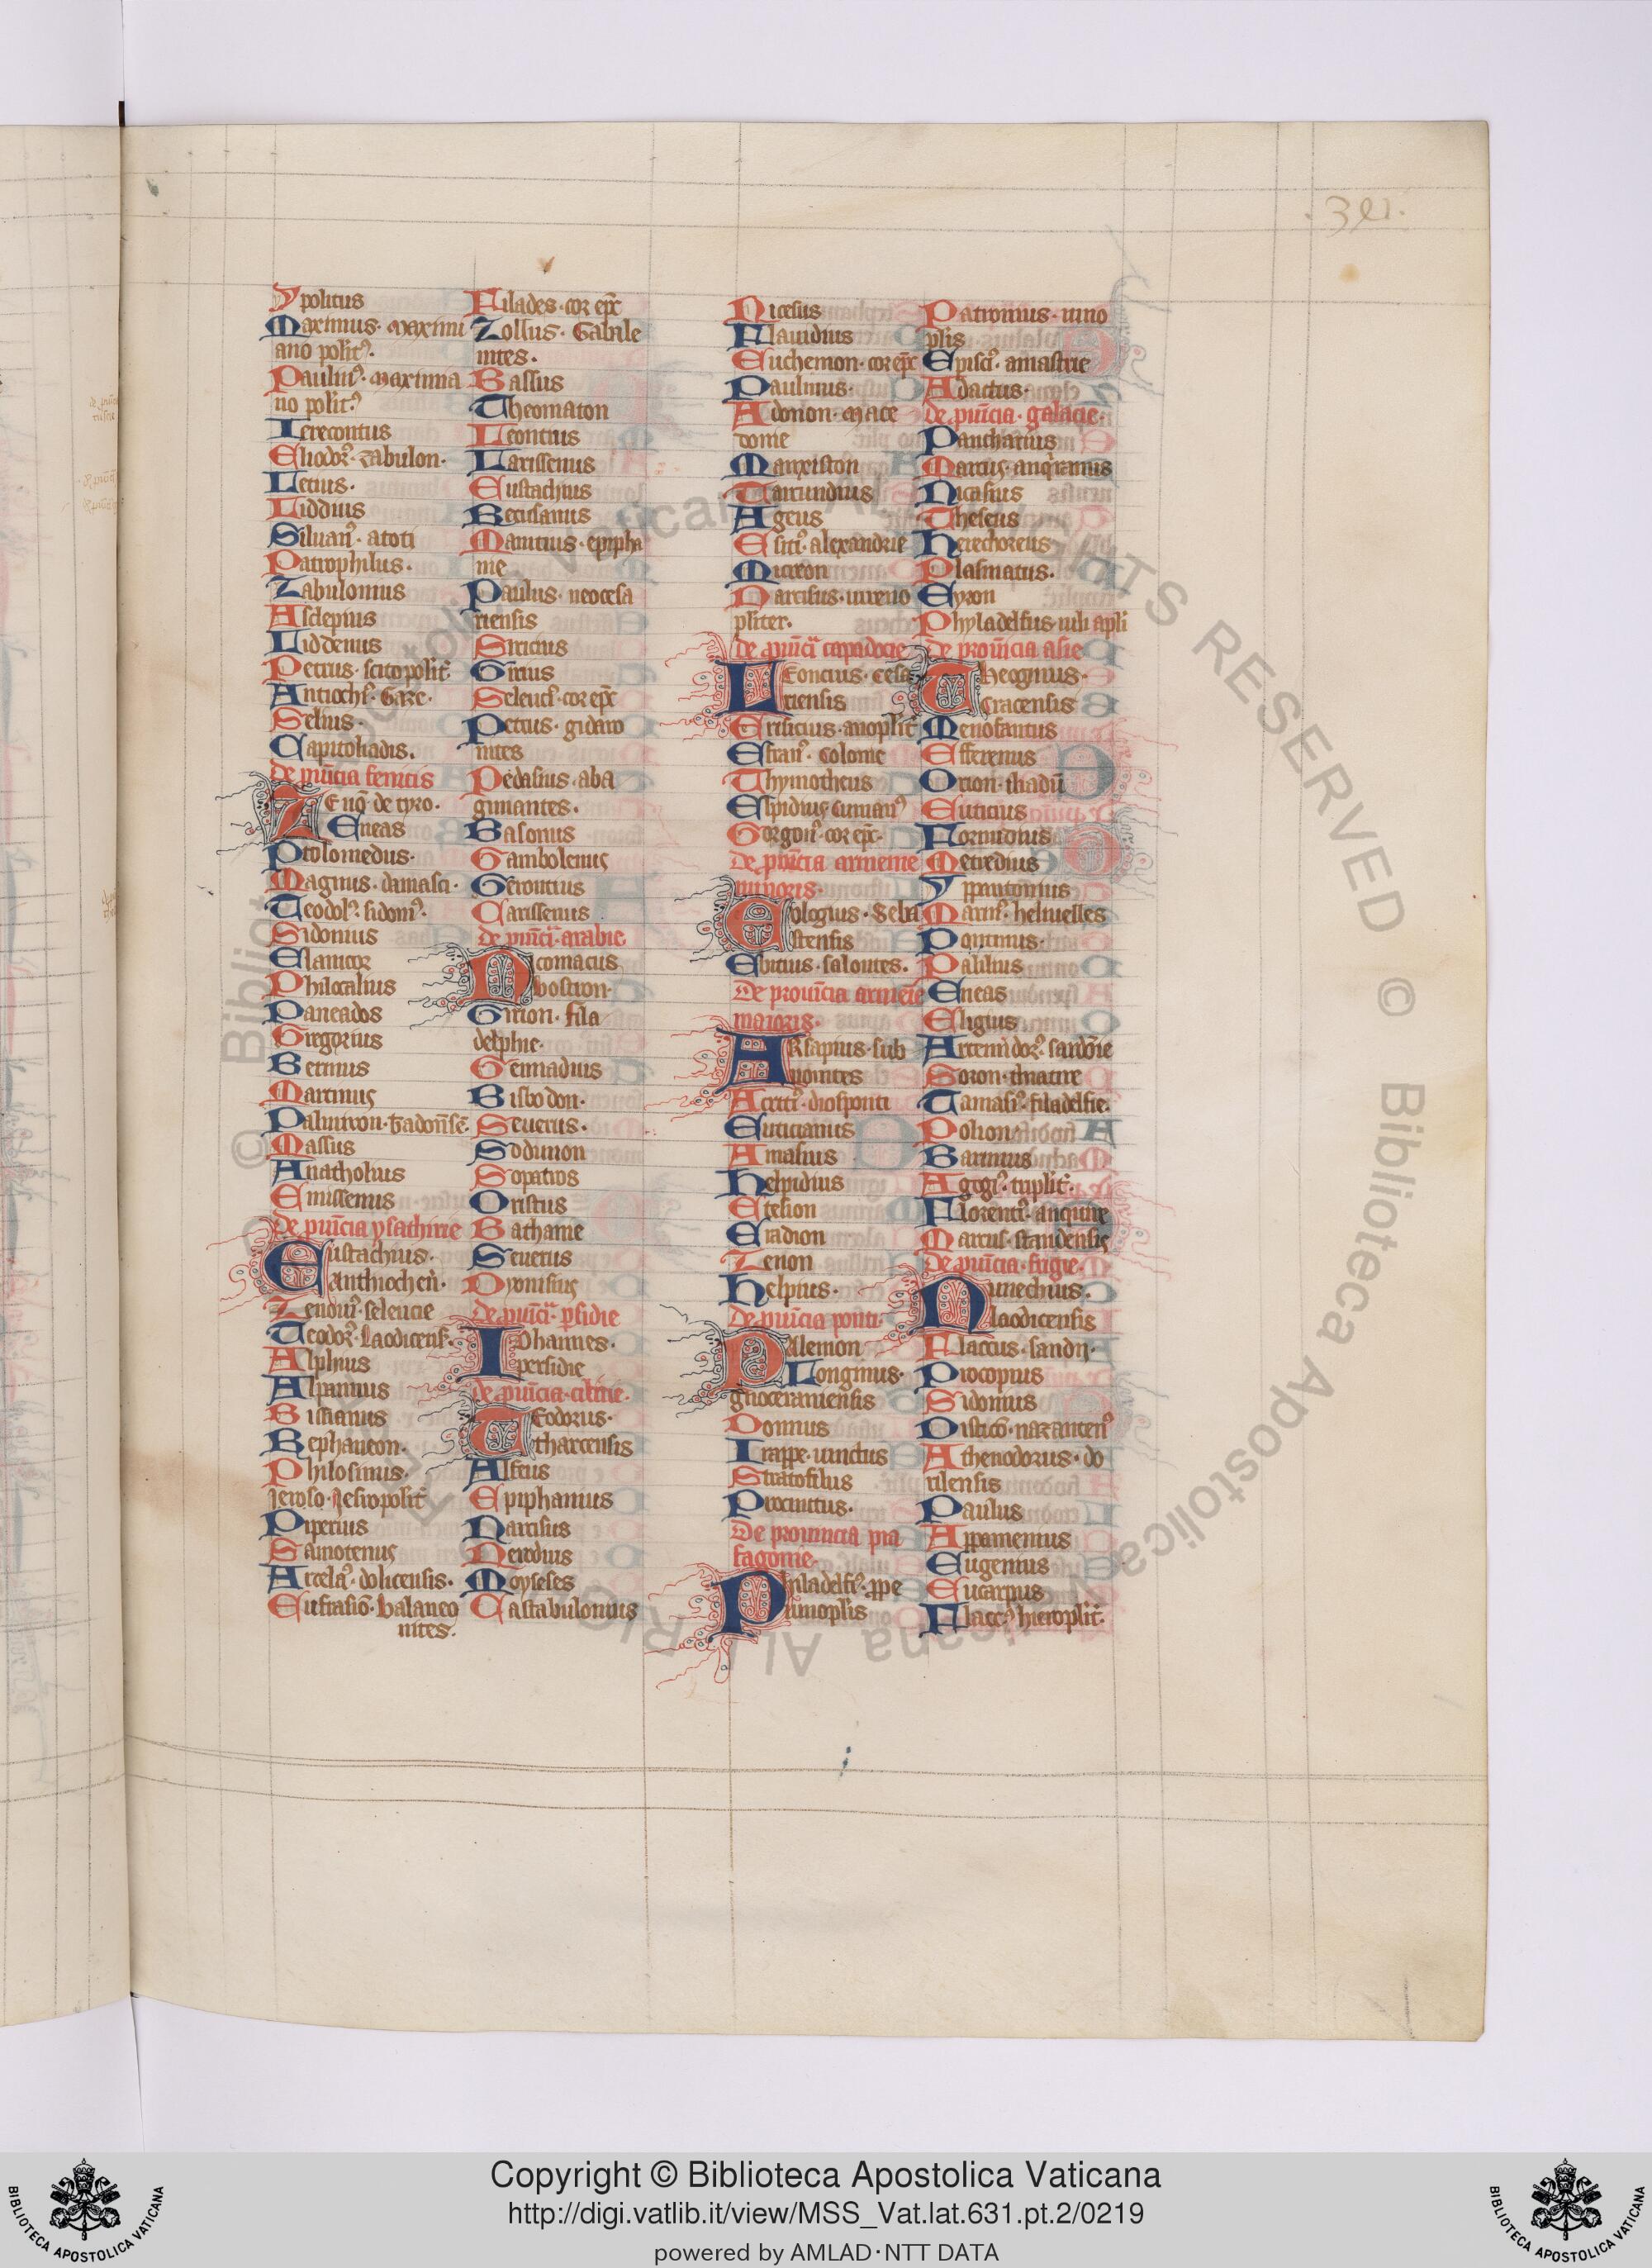 .391.
Ypolitus
Maximus. maximi
ano polit9.
Paulin9. maximia
no polit9
Ierecontus
Eliodor9. zabulon.
Letius.
Liddius
Siluan9. atoti
Patrophilus.
Zabulonius
Asclepius
Liddenus
Petrus. scitopolit9
Antioch9. Gaze.
Selius.
Capitoliadis.
de puicia fenicis
Zenod de tyro.
Eneas
Ptolomedus.
Magnus. damasci.
Teodol9. sidoni9.
Sidonius
Elanicor
Philocalius
Paneados
Gregorius
Betinus
Marinus
Massus
Anatholius
Emissenus
de puicia ysathirie
Eustachius.
anthiochen.
Zenduu9. seleucie
Teodor9. Laodicens.
Alphius
Alpanius
Bassianus
Rephaneon.
Philosinus.
Ieroso. Iesiropolit9
Piperius
Samotenus
Arcela9. dolicensis.
Eufrasio. balaneo
nites.
Filades. cor epc
Zollus. Gabile
nites.
Bassus
Theomaton
Leontius
Larissenus
Eustachius
Recusanus
Manitius. epipha
nie
Paulus. neocesa
riensis
Siricius
Grius
Seleuc9. cor epc
Petrus. gidaro
nites
Pedasius. aba
ginantes.
Basonus
Gambolenus
Gerontius
Carissenus
de puici arabie
Nicomacus
bostron.
Girion. fila
delphie.
Gennadius
Bisbo don.
Seuerus.
Sodimon
Sopatios
Oristus
Bathanie
Seuerus
Dyonisius
de puici psidie
Iohannes.
persidie
de puicia cilicie.
Teodorus.
tharcensis
Alseus
Epiphanius
Narcisus
Nerodius
Moyseses
Castabulonius
Nicesus
Flauidius
Euchemon. cor epc
Paulinus.
Adonon. mace
donie
Marxiston
Tarcundius
Ageus
Esici9. alexandrie
Niceon
Narcisus. irreno
psiter.
de puici capadocie
Leoncius. cesa
riensis
Erisicius. anoplit9
Estran9. colonie
Thymotheus
Elpidius cumian9
Gorgon9. cor epc.
De puicia armenie
minoris.
Eologius. Seba
stensis
Ebitius. saloutes.
De prouicia armeie
maioris.
Arsapius. sub
nointes
Acriti9. diosponti
Euticianus
Amasius
helpidius
Etelion
Eradion
Zenon
helpius.
De puicia ponti.
Palemon
Longinus.
gnoceraniensis
Donnus
Irappe. uinctus
Stratofilus
Procinctus.
De prouincia pra
fagonie.
Philadelf9. ppe
iunioplis
Patronius. uino
plis
Episc9. amastrie
Adactus.
de puicia. galacie.
Pancharius
Marcus. anquiranus
Nicasius
Theseus
herechoreus
Plasmatus.
Eyron
Phyladelfus. iuli apli
De prouicia asie
Theognius.
Cracensis
Menofantus
Efferenus
Orion. thadu
Euticius
Formidius
Metredius
Yppantonius
Marin9. heliuelles
Pontinus.
Palilius
Eneas
Eligius
Artemidor9. sardoie
Soron. thiatire
Tamas9. filadelfie.
Polion
Barinus
Agogi9. triplit9.
Florenti9. anquire
Marcus. standensis
De puicia. frigie.
Nunechius.
laodicensis
Flaccus. sandri.
Procopius
Sidonius
Pistico. nazanten9
Athenodorus. do
rilensis
Paulus
Appamenius
Eugenius
Eucarpus
Flacc9 hieroplit9.
© Biblioteca Apostolica Vaticana ALL RIGHTS RESERVED
Copyright © Biblioteca Apostolica Vaticana
http://digi.vatlib.it/view/MSS_Vat.lat.631.pt.2/0219
powered by AMLAD·NTT DATA
BIBLIOTECA APOSTOLICA VATICANA
BIBLIOTECA APOSTOLICA VATICANA